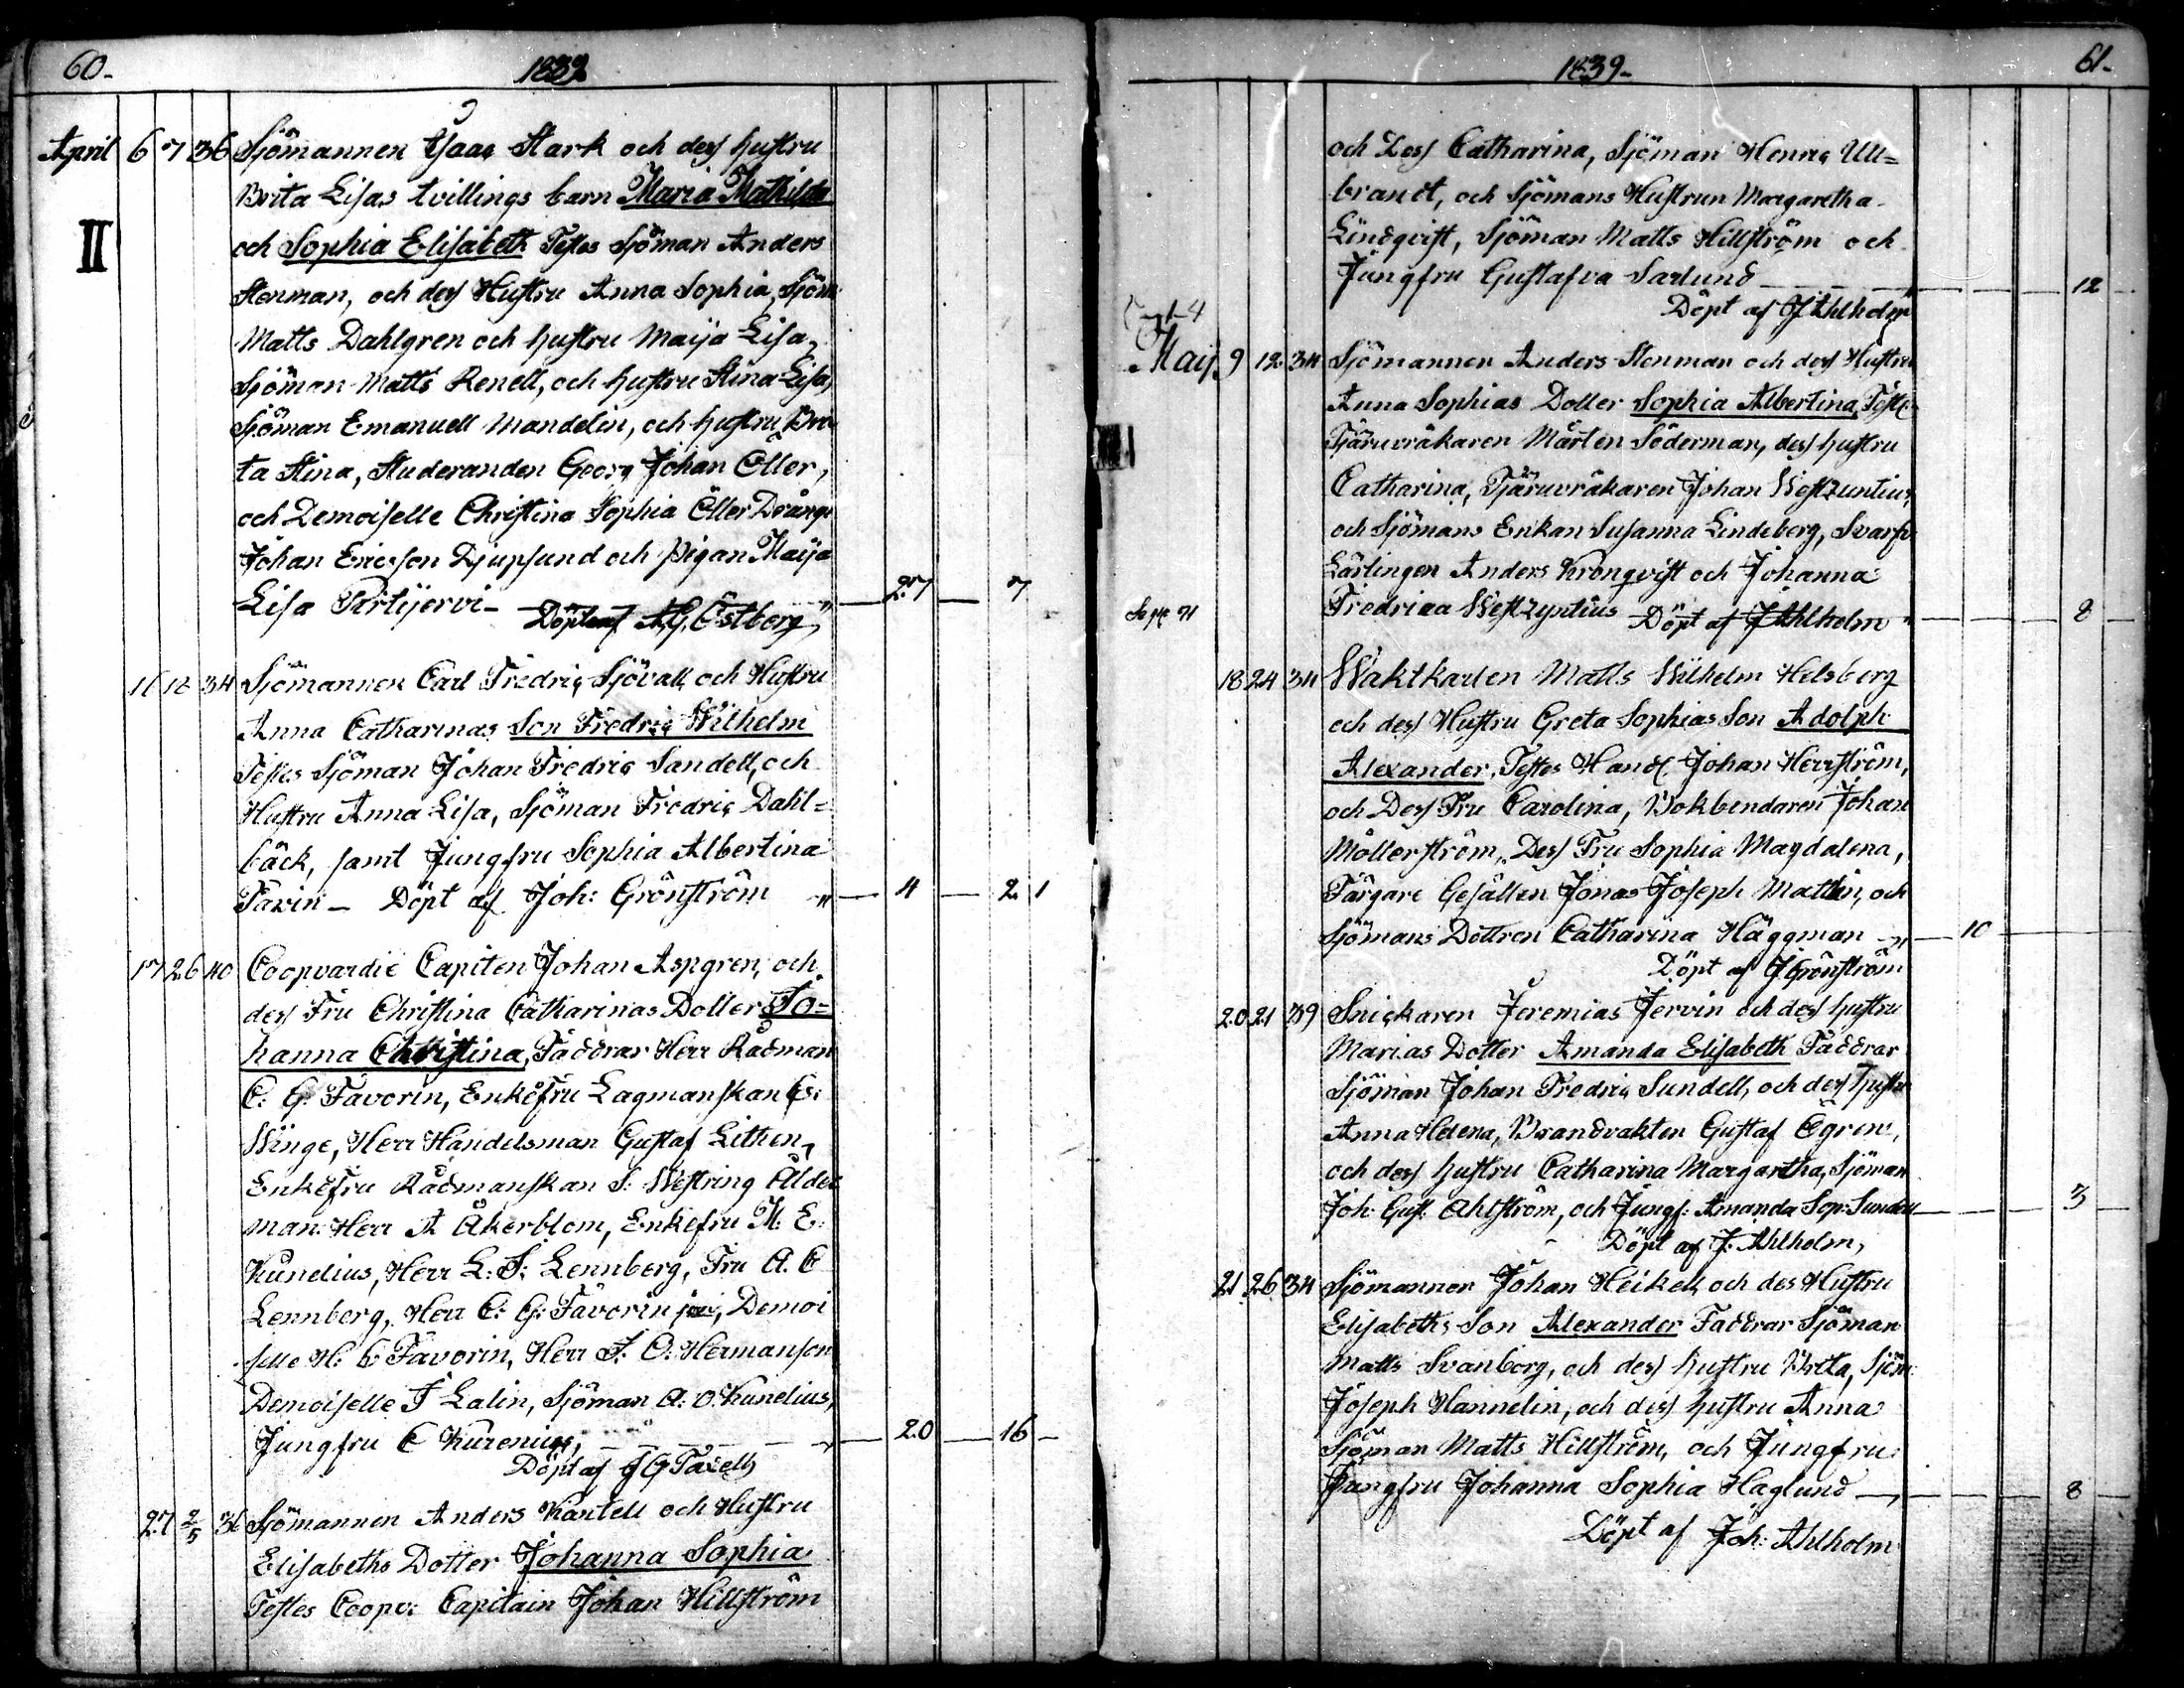 60.
1839
April 6 7 36 Sjömannen Isaac Stark och dess hustru
Brita Lisas tvillings barn Maria Mathilda
II
och Sophia Elisabeth Testes Sjöman Anders
Stenman, och dess Hustru Anna Sophia, Sjöm
Matts Dahlgren och hustru Maija Lisa,
Sjöman Matts Renell, och hustru Stina Lisa,
Sjöman Emanuell Mandelin, och hustru Bri
ta Stina, Studeranden Georg Johan Öller,
och Demoiselle Christina Sophia Öller Drängn
Johan Ericsson Djupsund och pigan Maija
Lisa Pirtijervi — 27 — 7
Döpte af AG, Östberg,
16 18 34 Sjömannen Carl Fredric Sjövall, och Hustru
Anna Catharinas Son Fredric Wilhelm
Testes Sjöman Johan Fredric Sandell, och
Hustru Anna Lisa, Sjöman Fredric Dahl=
bäck, samt Jungfru Sophia Albertina
Favrin — Döpt af Joh: Grönström — 4 — 2 1
17 26 40 Coopvardie Capiten Johan Aspgren, och
dess Fru Christina Catharinas Dotter Jo=
hanna Christina, Faddrar Herr Rådman
C. G. Favorin, Enkefru Lagmanskan Cs:
Winge, Herr Handelsman Gustaf Lithen,
Enkefru Rådmanskan S: Westring Ålder
man: Herr A Åkerblom, Enkefru M. E.
Kunelius, Herr L: S: Lennberg, Fru A. C
Lennberg, Herr C: G: Favorin jun, Demoi
selle H: C Favorin, Herr S: O: Hermanson
Demoiselle F Lalin, Sjöman A: O. Kunelius,
Jungfru C Kurenius, — 20 — 16 —
Döpt af J G Taxell,
27 2/5 36 Sjömannen Anders Kantell och Hustru
Elisabeths Dotter Johanna Sophia
Testes Coopv: Capitain Johan Hillström
1839-
61-
och Dess Catharina, Sjöman Henric Ull=
brandt, och Sjömans Hustrun Margaretha
Lindqvist, Sjöman Matts Hillström och
Jungfru Gustafva Sarlund — 12
Döpt af J Ahlholm
Maij 9 12 34 Sjömannen Anders Stenman och dess Hustru
Anna Sophias Dotter Sophia Albertina, Teste:
Tjäruvräkaren Mårten Söderman, dess hustru
Catharina, Tjäruvräkaren Johan Westzuntius,
och Sjömans Enkan Susanna Lindeberg, Svarfv
Lärlingen Anders Kronqvist och Johanna
Fredrica Westzyntius Döpt af J Ahlholm — 8
18 24 34 Waktkarlen Matts Wilhelm Helsberg
och dess Hustru Greta Sophias Son Adolph
Alexander, Testes Handl. Johan Herrström,
och Dess Fru Carolina, Bokbendaren Johan
Möllerström, Dess Fru Sophia Magdalena,
Färgare Gesällen Jonas Joseph Mattlin, och
Sjömans Dottren Catharina Häggman — 10
Döpt af J Grönström
20 21 39 Snickaren Jeremias Jervin och dess hustru
Marias Dotter Amanda Elisabeth Faddrar
Sjöman Johan Fredric Sundell, och dess hustru
Anna Helena, Brandvakten Gustaf Ögren,
och dess hustru Catharina Margartha, Sjöman
Joh: Gust: Ahlström, och Jungf: Amanda Sop: Sundell — 3
Döpt af J. Ahlholm,
21 26 34 Sjömannen Johan Heikell, och des Hustru
Elisabeths Son Alexander Faddrar Sjöman
Matts Svanborg, och dess hustru Brita, Sjöm
Joseph Hannelin, och dess hustru Anna
Sjöman Matts Hillström, och Jungfru
Jungfru Johanna Sophia Häglund — 8
Döpt af Joh: Ahlholm